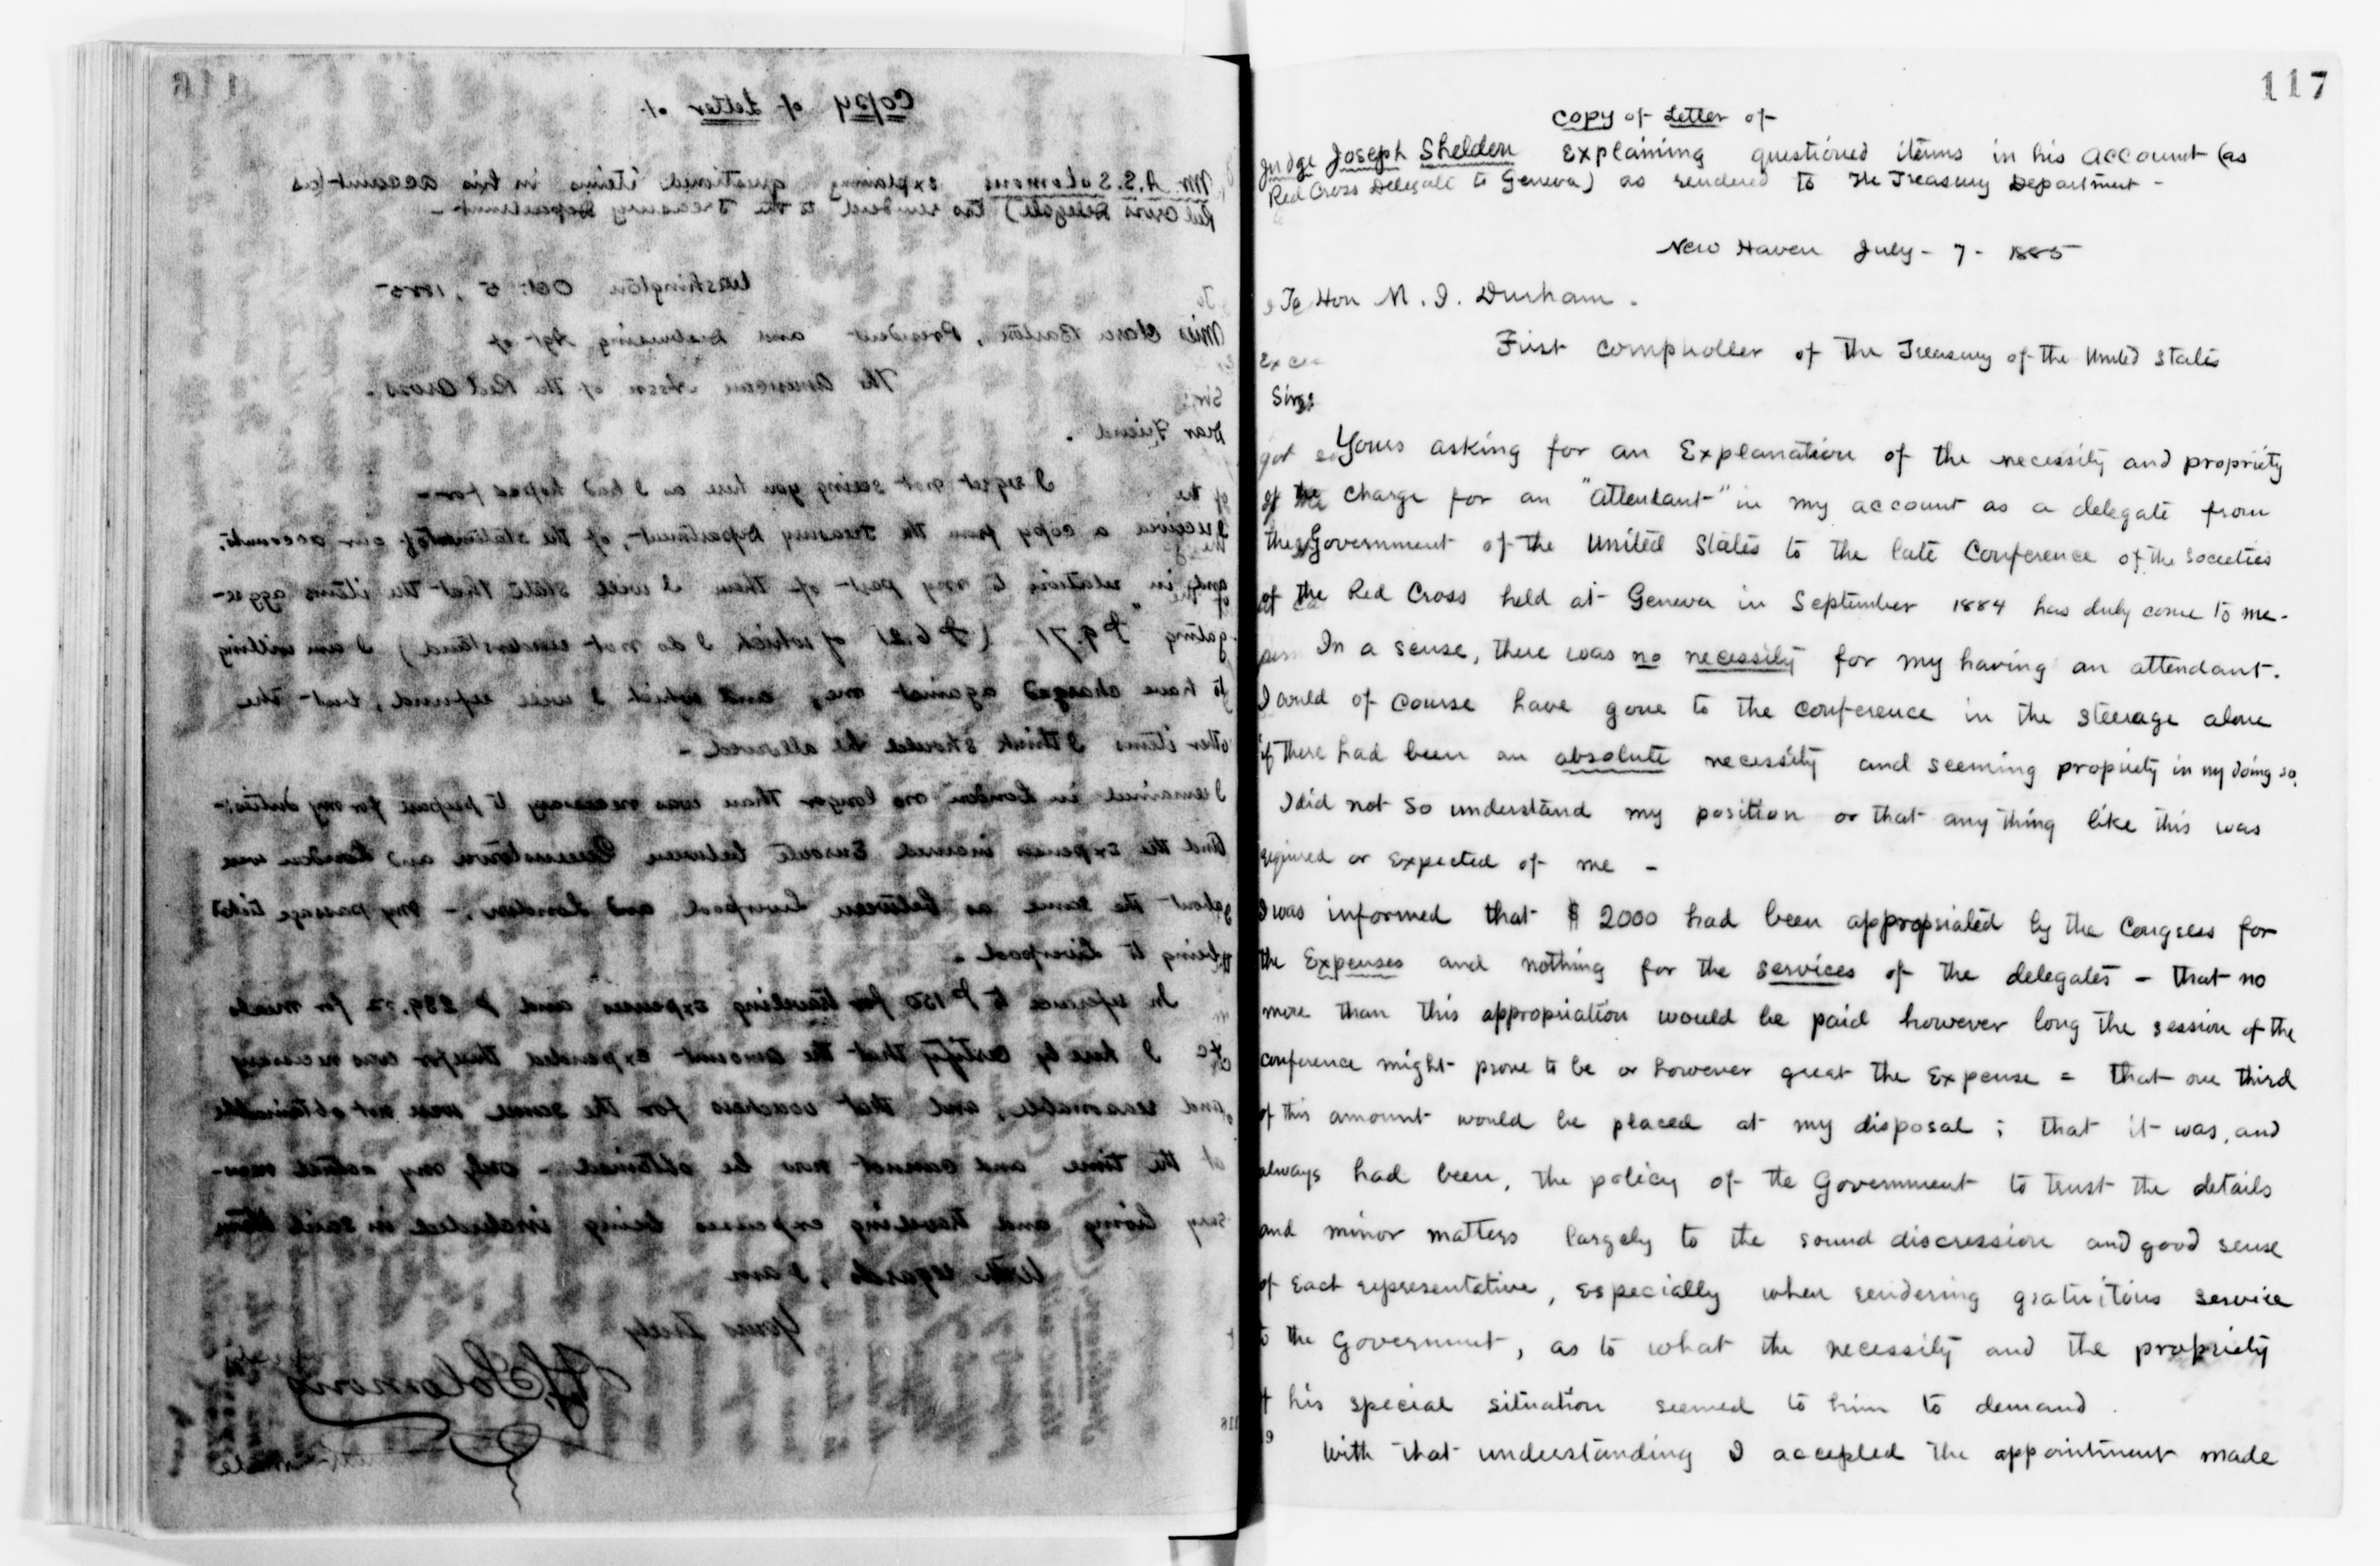 116
Copy of Letter of
Mr A.S. Solomons explaining questioned items in his account (as
Red Cross Delegate) as rendered to the Treasury Department -
Washington Oct. 5, 1885-
Miss Clara Barton, President and Disbursing Agt of
The American Assn of the Red Cross.
Dear Friend.
I regret not seeing you here as I had hoped for-
I received a copy from the Treasury Department, of the statement of our accounts,
and in relation to my part of them I will state that the items aggre-
gating $9.71 ($6.21 of which I do not understand) I am willing
to have charged against me, and which I will refund, but the
other items I think should be allowed -
I remained in London no longer than was necessary to prepare for my duties:-
And the expenses incurred enroute between Queenstown and London were
about the same as between Liverpool and London, - my passage ticket
being to Liverpool.
In reference to $150 for traveling expenses and $289.72 for meals
&c I here by certify that the amount expended therefor was necessary
and reasonable, and that vouchers for the same were not obtainable
at the time and cannot now be obtained - only my actual neces-
sary living and traveling expenses being included in said item
With regards, I am
Yours truly
A.S. Solomons
117
Copy of Letter of
Judge Joseph Sheldon Explaining questioned items in his account (as
Red Cross Delegate to Geneva) as rendered to the Treasury Department -
New Haven July - 7 - 1885
To Hon M. J. Durham.
First Comptroller of the Treasury of the United States
Sir:
Yours asking for an Explanation of the necessity and propriety
of the charge for an "attendant" in my account as a delegate from
the Government of the United States to the late Conference of the Societies
of the Red Cross held at Geneva in September 1884 has duly come to me-
In a sense, there was no necessity for my having an attendant.
I could of course have gone to the conference in the steerage alone
if there had been an absolute necessity and seeming propriety in my doing so.
I did not so understand my position or that any thing like this was
required or expected of me -
I was informed that $2000 had been appropriated by the Congress for
the Expenses and nothing for the services of the delegates - that no
more than this appropriation would be paid however long the session of the
conference might prove to be or however great the Expense = that one third
of this amount would be placed at my disposal; that it was, and
always had been, the policy of the Government to trust the details
and minor matters largely to the sound discression and good sense
of Each representative, Especially when rendering gratuitous service
to the Government, as to what the necessity and the propriety
of his special situation seemed to him to demand.
With that understanding I accepted the appointment made